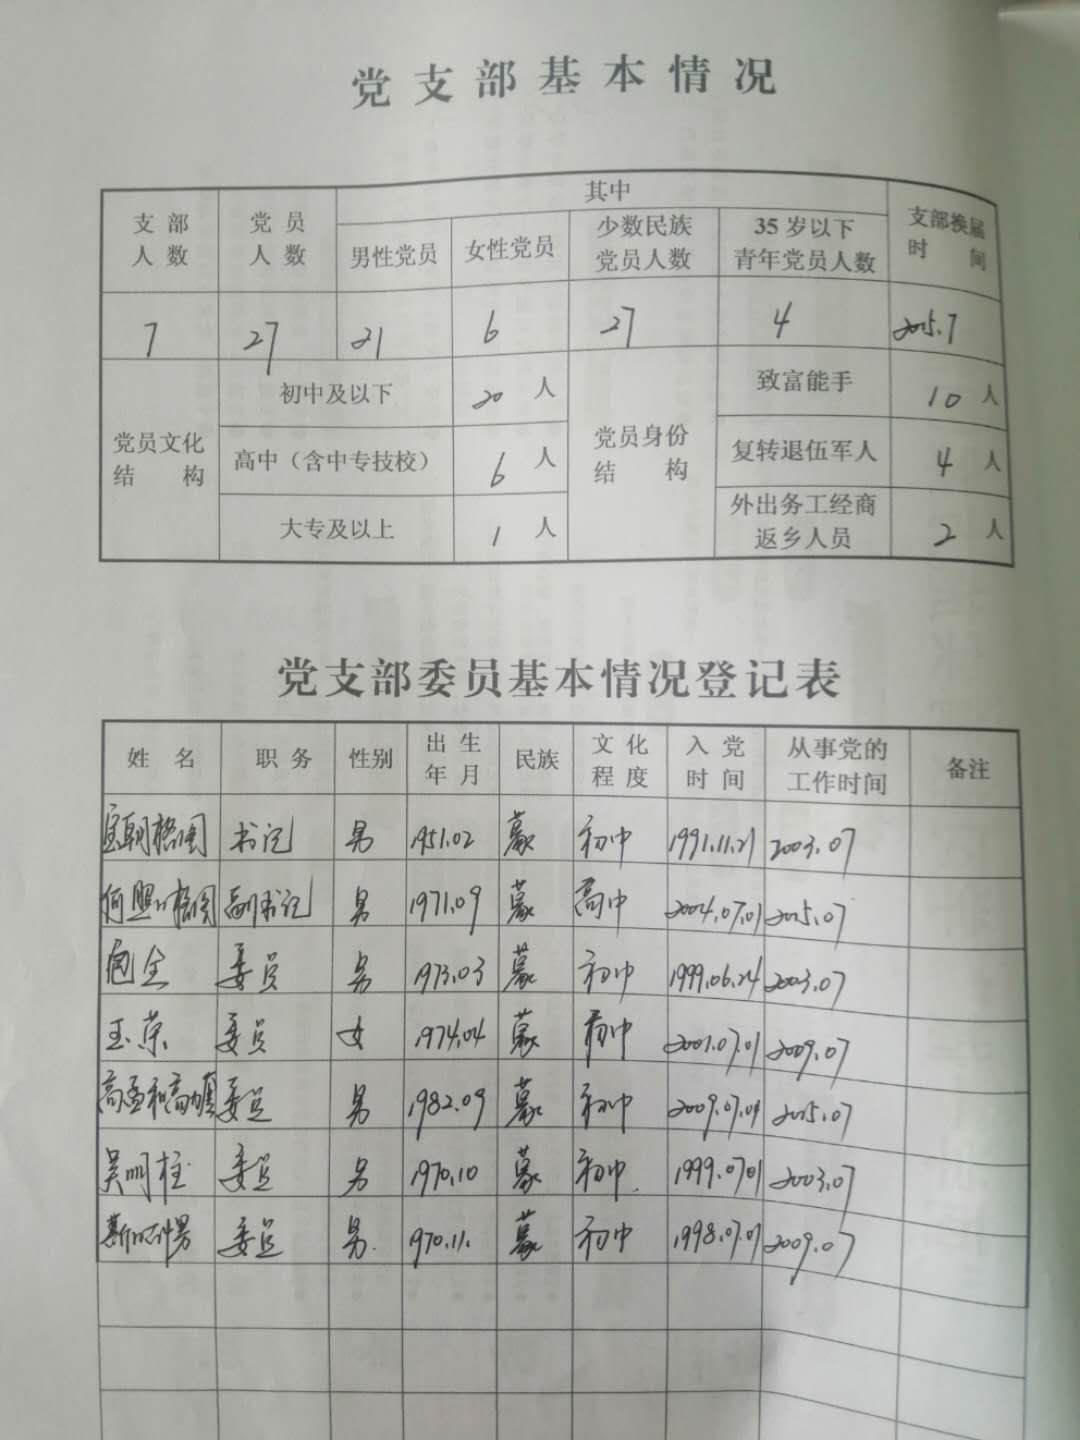 党支部基本情况
支部人数 党员人数 其中 支部换届时间
男性党员 女性党员 少数民族党员人数 35岁以下青年党员人数
7 27 21 6 27 4 2015.7
党员文化结构 初中及以下 20人 党员身份结构 致富能手 10人
高中（含中专技校） 6人 复转退伍军人 4人
大专及以上 1人 外出务工经商返乡人员 2人
党支部委员基本情况登记表
姓名 职务 性别 出生年月 民族 文化程度 入党时间 从事党的工作时间 备注
书记 男 1951.02 蒙 初中 1991.11.21 2003.07
副书记 男 1971.09 蒙 高中 2004.07.01 2015.07
包全 委员 男 1973.03 蒙 初中 1999.06.24 2003.07
玉荣 委员 女 1974.04 蒙 初中 2001.07.01 2009.07
委员 男 1982.09 蒙 初中 2009.07.01 2015.07
吴明柱 委员 男 1970.10 蒙 初中 1999.0701 2003.07
委员 男 1970.11. 蒙 初中 1998.07.01 2009.07